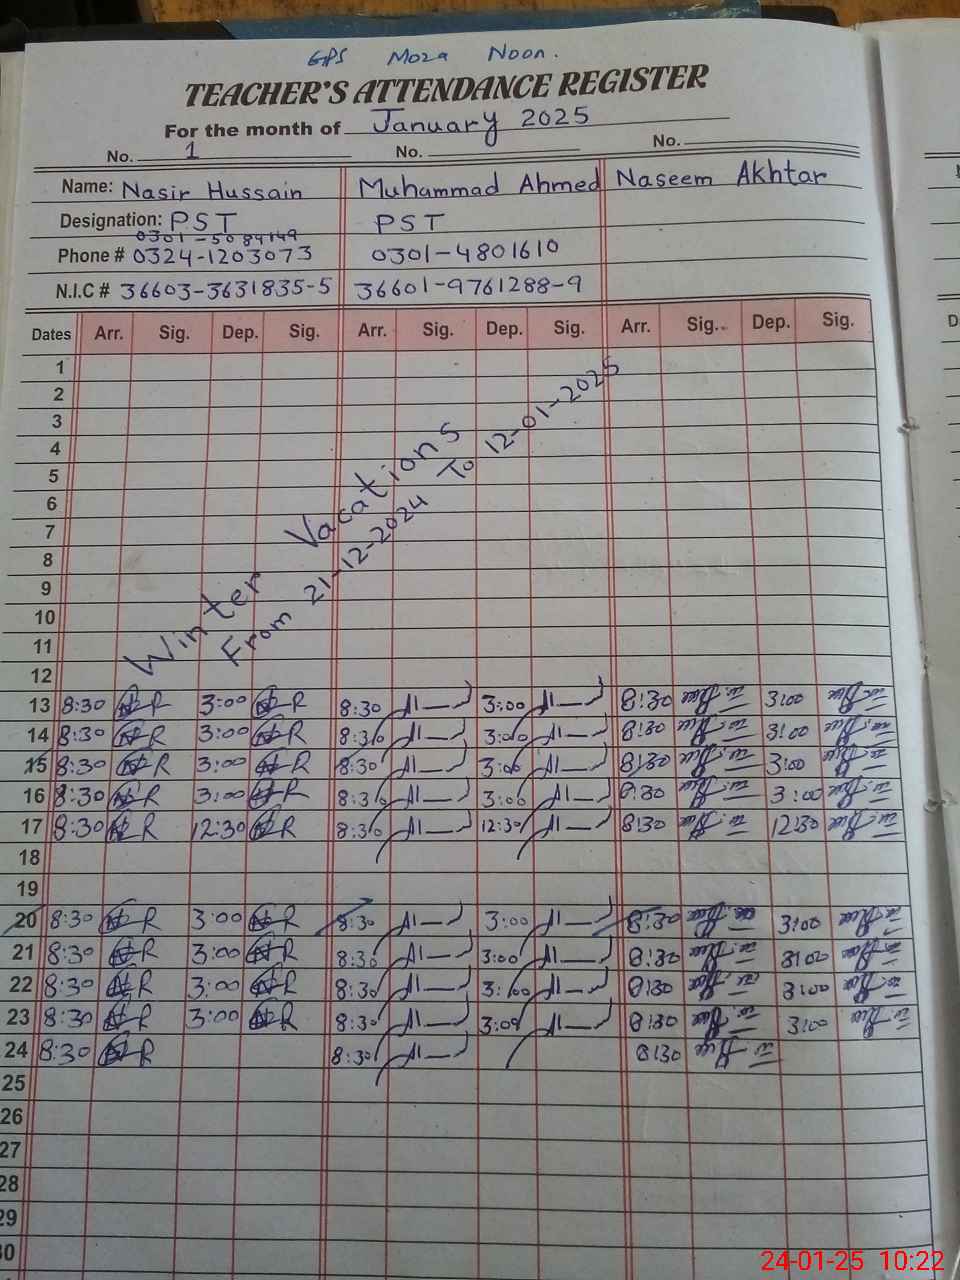 GPS Moza Noon.
TEACHER'S ATTENDANCE REGISTER
For the month of January 2025
No. 1 No. No.
Name: Nasir Hussain Muhammad Ahmed Naseem Akhtar
Designation: PST PST
0301-5084149
Phone # 0324-1203073 0301-4801610
N.I.C # 36603-3631835-5 36601-9761288-9
Dates Arr. Sig. Dep. Sig. Arr. Sig. Dep. Sig. Arr. Sig. Dep. Sig.
1
2
3
4
5
6
7
8
9
10
11
12
Winter Vacations
From 21-12-2024 To 12-01-2025
13 8:30 3:00 8:30 3:00 8:30 3:00
14 8:30 3:00 8:30 3:00 8:30 3:00
15 8:30 3:00 8:30 3:00 8:30 3:00
16 8:30 3:00 8:30 3:00 8:30 3:00
17 8:30 12:30 8:30 12:30 8:30 12:30
18
19
20 8:30 3:00 8:30 3:00 8:30 3:00
21 8:30 3:00 8:30 3:00 8:30 3:00
22 8:30 3:00 8:30 3:00 8:30 3:00
23 8:30 3:00 8:30 3:00 8:30 3:00
24 8:30 8:30 8:30
25
26
27
28
29
30
D
24-01-25 10:22